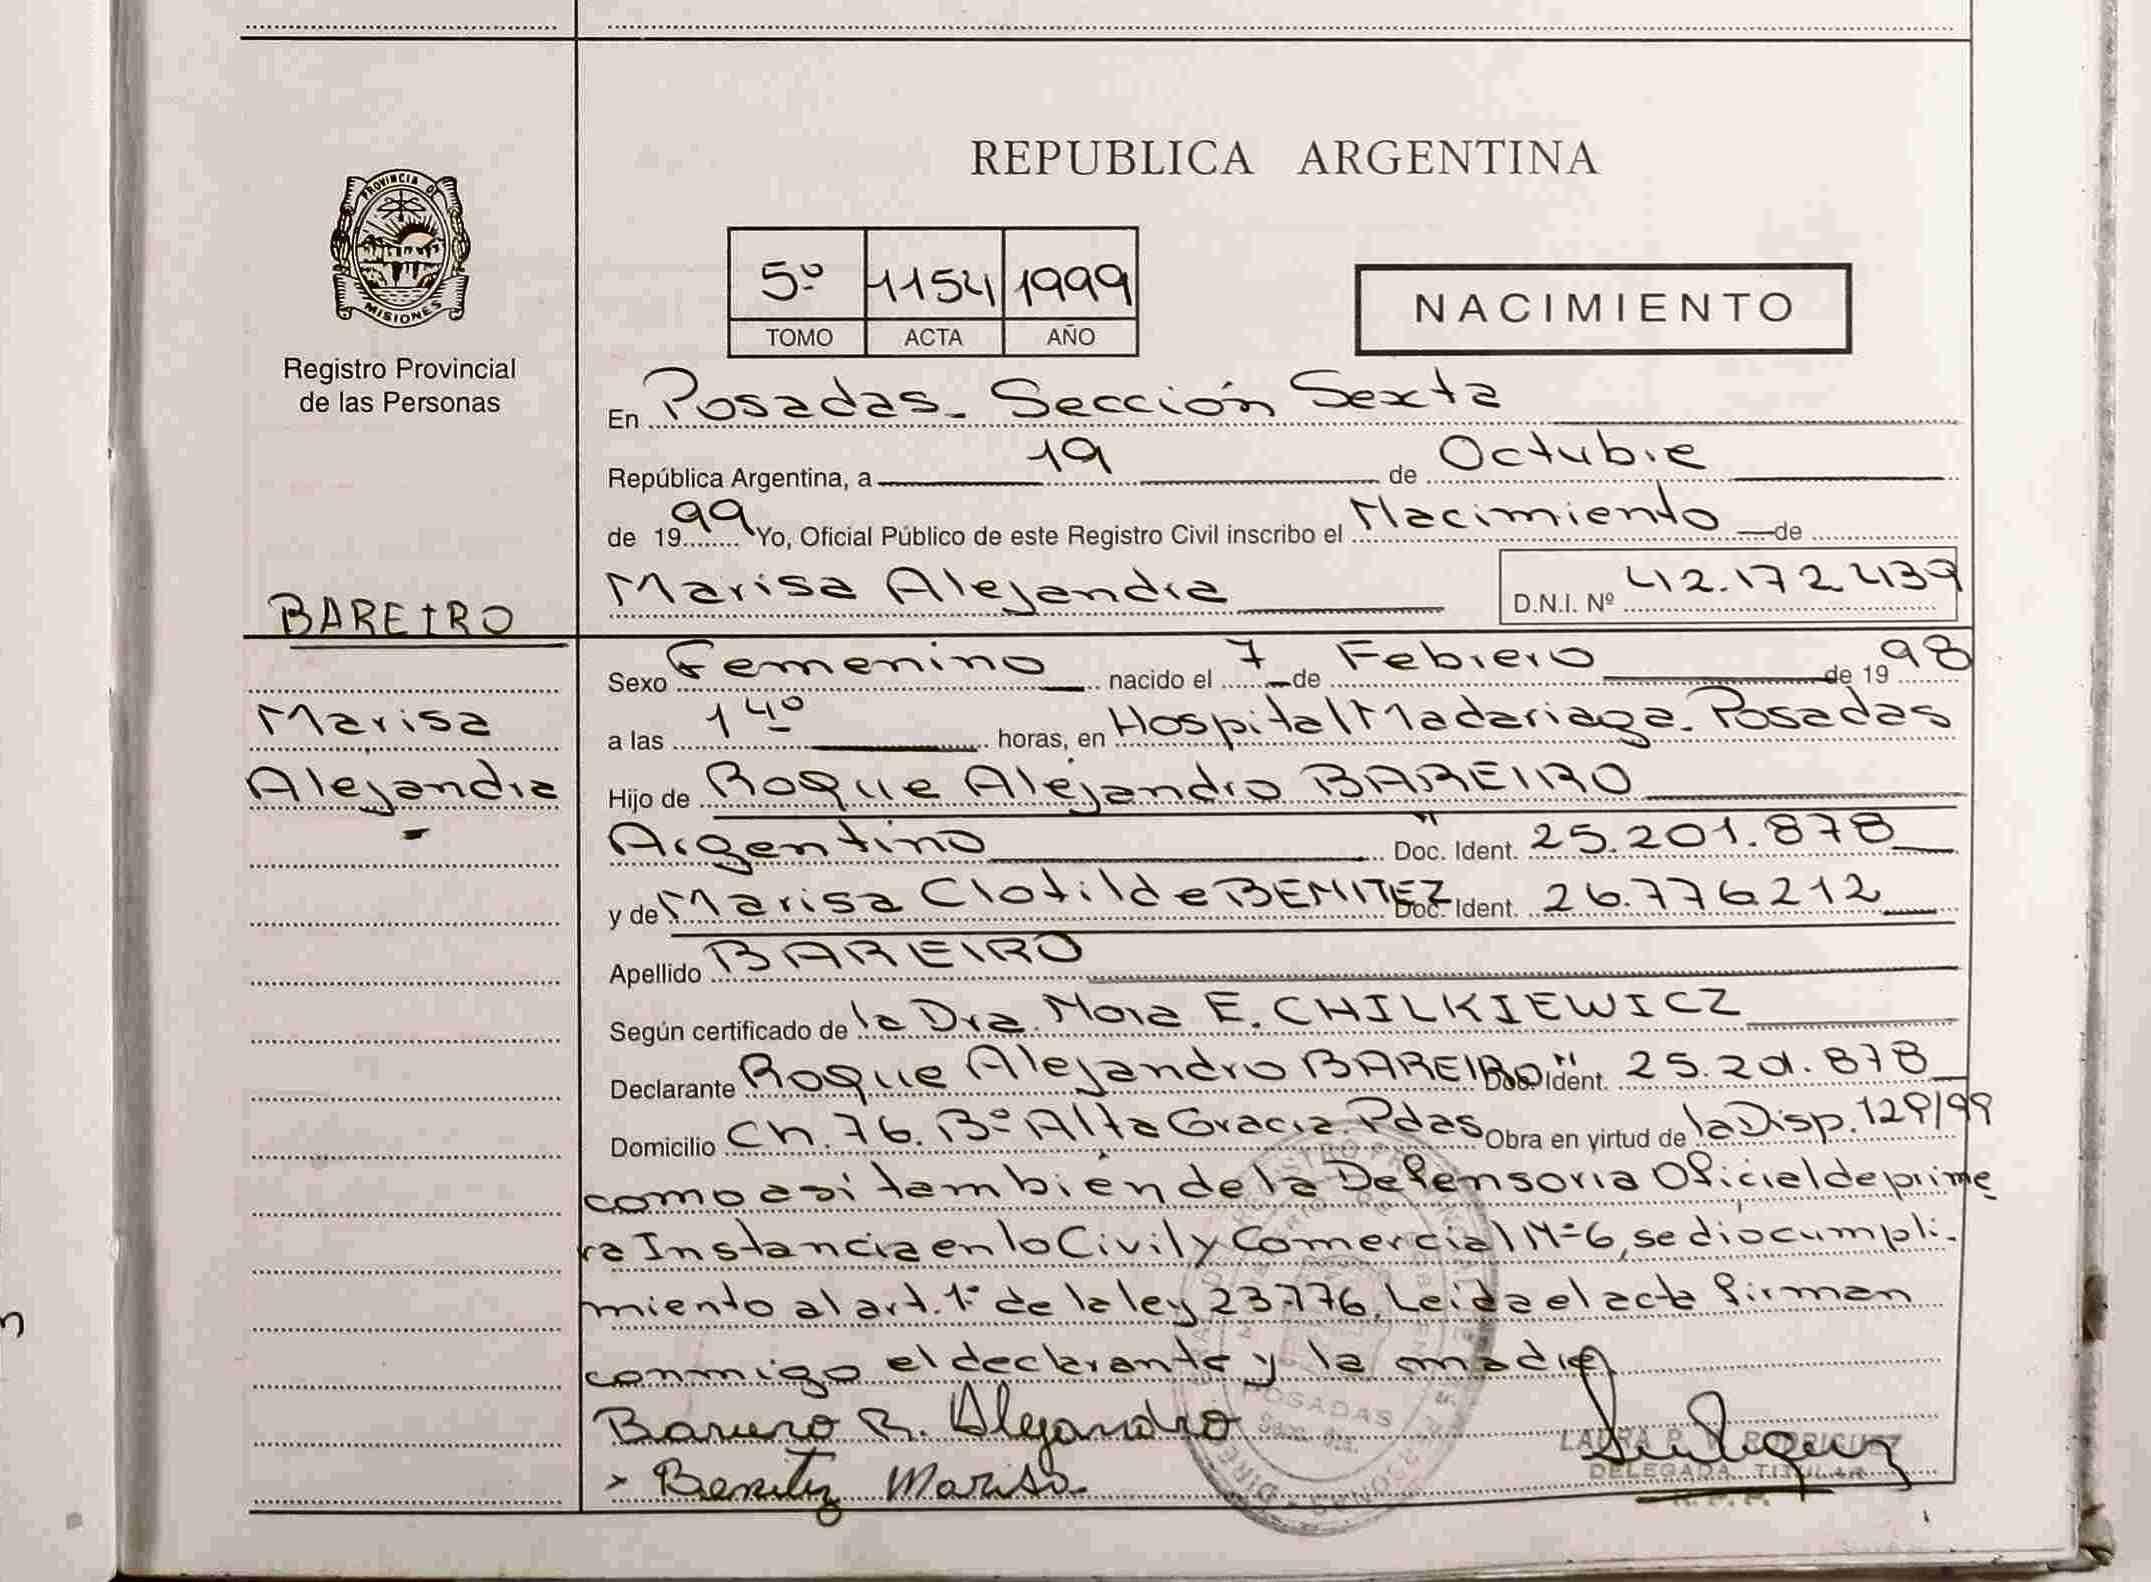 REPUBLICA ARGENTINA
PROVINCIA DE
MISIONES
Registro Provincial
de las Personas
5º 1154 1999
TOMO ACTA AÑO
NACIMIENTO
En Posadas - Sección Sexta
República Argentina, a 19 de Octubre
de 1999 Yo, Oficial Público de este Registro Civil inscribo el Nacimiento de
Marisa Alejandra D.N.I. Nº 42.172.439
BAREIRO
Marisa
Alejandra
Sexo Femenino nacido el 7 de Febrero de 1998
a las 14º horas, en Hospital Madariaga - Posadas
Hijo de Roque Alejandro BAREIRO
Argentino Doc. Ident. 25.201.878
y de Marisa Clotilde BENITEZ Doc. Ident. 26.776.212
Apellido BAREIRO
Según certificado de la Dra. Nora E. CHILKIEWICZ
Declarante Roque Alejandro BAREIRO Doc. Ident. 25.201.878
Domicilio Ch. 76. Bº Alta Gracia. Pdas Obra en virtud de la Disp. 129/99
como así también de la Defensoria Oficial de prime
ra Instancia en lo Civil y Comercial Nº 6, se dio cumpli-
miento al art. 1º de la ley 23.776. Leida el acta firman
conmigo el declarante y la madre
Bareiro R. Alejandro
Benitez Marisa
POSADAS
LAURA RODRIGUEZ
DELEGADA TITULAR
R.P.P.